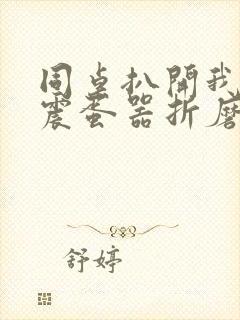 同桌扒開我
震蛋器折磨
舒婷